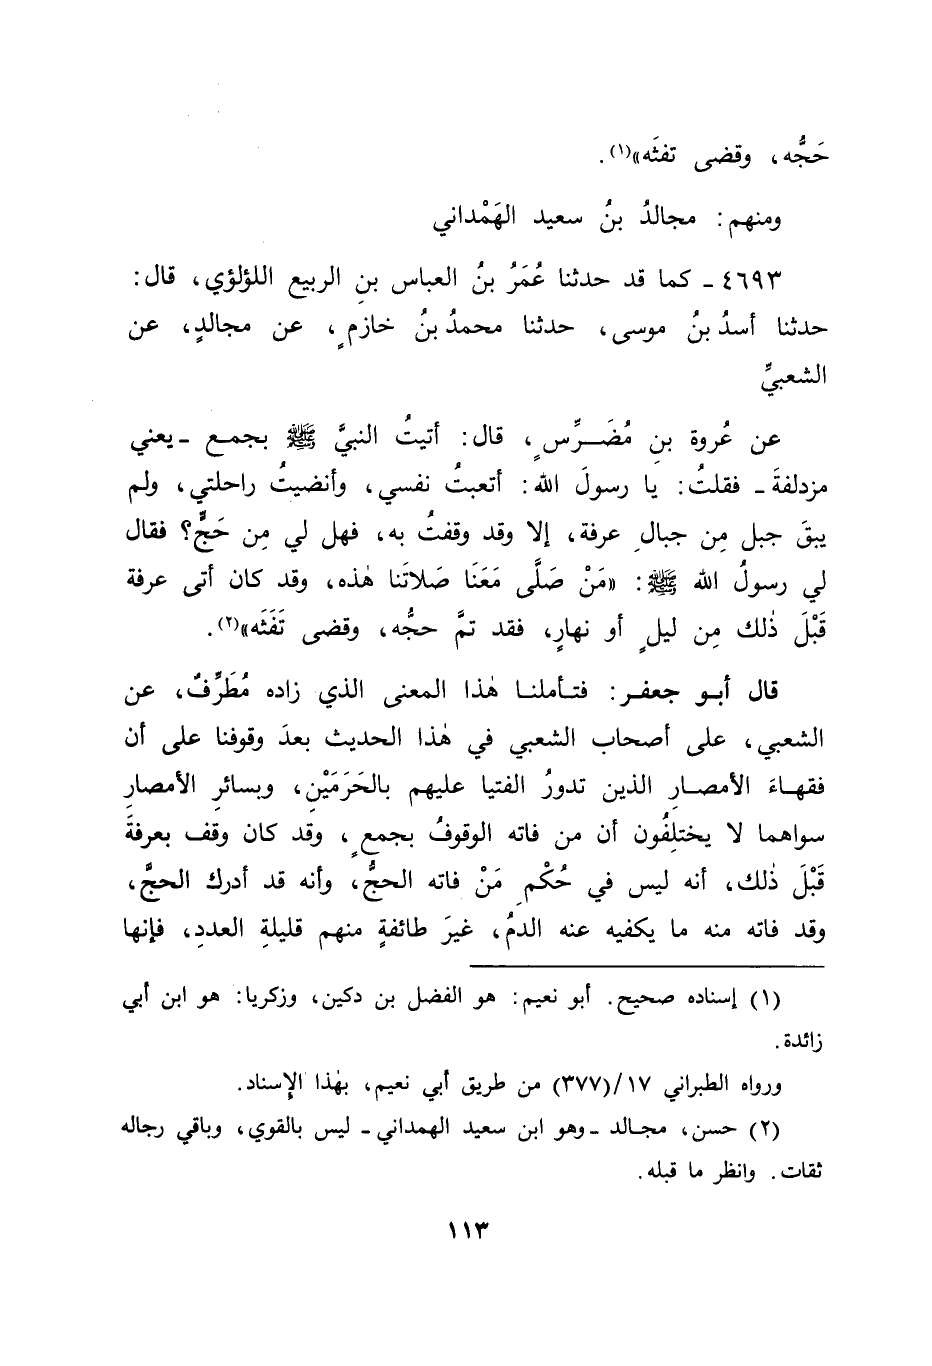 حَجُّه، وقضى تفثَه»(١).
ومنهم: مجالدُ بنُ سعيد الهَمْداني
٤٦٩٣ ـ كما قد حدثنا عُمَرُ بنُ العباس بنِ الربيع اللؤلؤي، قال:
حدثنا أسدُ بنُ موسى، حدثنا محمدُ بنُ خازمٍ، عن مجالدٍ، عن
الشعبيِّ
عن عُروة بنِ مُضَرِّسٍ، قال: أتيتُ النبيَّ ﷺ بجمع ـ يعني
مزدلفةَ ـ فقلتُ: يا رسولَ الله: أتعبتُ نفسي، وأنضيتُ راحلتي، ولم
يبقَ جبل مِن جبالِ عرفة، إلا وقد وقفتُ به، فهل لي مِن حَجٍّ؟ فقال
لي رسولُ الله ﷺ: «مَنْ صَلَّى مَعَنَا صَلاتَنا هٰذه، وقد كان أتى عرفة
قَبْلَ ذٰلك مِن ليلٍ أو نهارٍ، فقد تمَّ حجُّه، وقضى تَفَثَه»(٢).
قال أبو جعفر: فتأملنا هٰذا المعنى الذي زاده مُطَرِّفٌ، عن
الشعبي، على أصحاب الشعبي في هٰذا الحديث بعدَ وقوفنا على أن
فقهاءَ الأمصارِ الذين تدورُ الفتيا عليهم بالحَرَمَيْنِ، وبسائرِ الأمصارِ
سواهما لا يختلِفُون أن من فاته الوقوفُ بجمعٍ، وقد كان وقف بعرفةَ
قَبْلَ ذٰلك، أنه ليس في حُكْمِ مَنْ فاته الحجُّ، وأنه قد أدرك الحجَّ،
وقد فاته منه ما يكفيه عنه الدمُ، غيرَ طائفةٍ منهم قليلةِ العددِ، فإنها
(١) إسناده صحيح. أبو نعيم: هو الفضل بن دكين، وزكريا: هو ابن أبي
زائدة.
ورواه الطبراني ١٧/(٣٧٧) من طريق أبي نعيم، بهٰذا الإسناد.
(٢) حسن، مجالد ـ وهو ابن سعيد الهمداني ـ ليس بالقوي، وباقي رجاله
ثقات. وانظر ما قبله.
١١٣